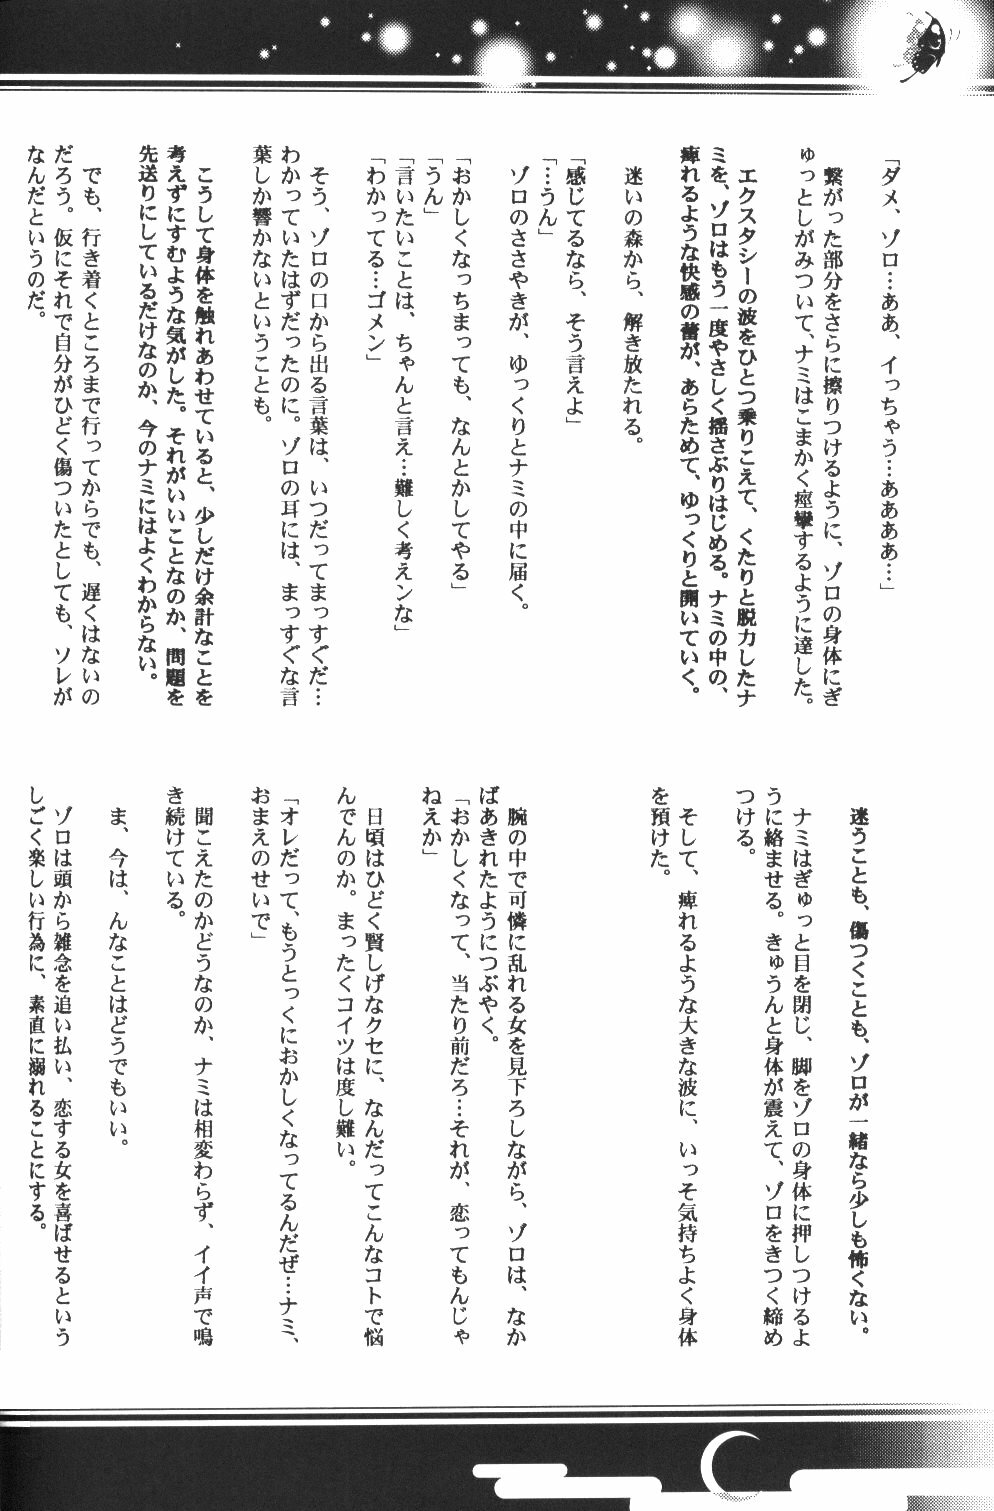 「ダメ、ゾロ…ああ、イっちゃう…ああああ…」
繋がった部分をさらに擦りつけるように、ゾロの身体にぎ
ゅっとしがみついて、ナミはこまかく痙攣するように達した。
エクスタシーの波をひとつ乗りこえて、くたりと脱力したナ
ミを、ゾロはもう一度やさしく揺さぶりはじめる。ナミの中の、
痺れるような快感の蕾が、あらためて、ゆっくりと開いていく。
迷いの森から、解き放たれる。
「感じてるなら、そう言えよ」
「…うん」
ゾロのささやきが、ゆっくりとナミの中に届く。
「おかしくなっちまっても、なんとかしてやる」
「うん」
「言いたいことは、ちゃんと言え…難しく考えンな」
「わかってる…ゴメン」
そう、ゾロの口から出る言葉は、いつだってまっすぐだ…
わかっていたはずだったのに。ゾロの耳には、まっすぐな言
葉しか響かないということも。
こうして身体を触れあわせていると、少しだけ余計なことを
考えずにすむような気がした。それがいいことなのか、問題を
先送りにしているだけなのか、今のナミにはよくわからない。
でも、行き着くところまで行ってからでも、遅くはないの
だろう。仮にそれで自分がひどく傷ついたとしても、ソレが
なんだというのだ。
迷うことも、傷つくことも、ゾロが一緒なら少しも怖くない。
ナミはぎゅっと目を閉じ、脚をゾロの身体に押しつけるよ
うに絡ませる。きゅうんと身体が震えて、ゾロをきつく締め
つける。
そして、痺れるような大きな波に、いっそ気持ちよく身体
を預けた。
腕の中で可憐に乱れる女を見下ろしながら、ゾロは、なか
ばあきれたようにつぶやく。
「おかしくなって、当たり前だろ…それが、恋ってもんじゃ
ねえか」
日頃はひどく賢しげなクセに、なんだってこんなコトで悩
んでんのか。まったくコイツは度し難い。
「オレだって、もうとっくにおかしくなってるんだぜ…ナミ、
おまえのせいで」
聞こえたのかどうなのか、ナミは相変わらず、イイ声で鳴
き続けている。
ま、今は、んなことはどうでもいい。
ゾロは頭から雑念を追い払い、恋する女を喜ばせるという
しごく楽しい行為に、素直に溺れることにする。